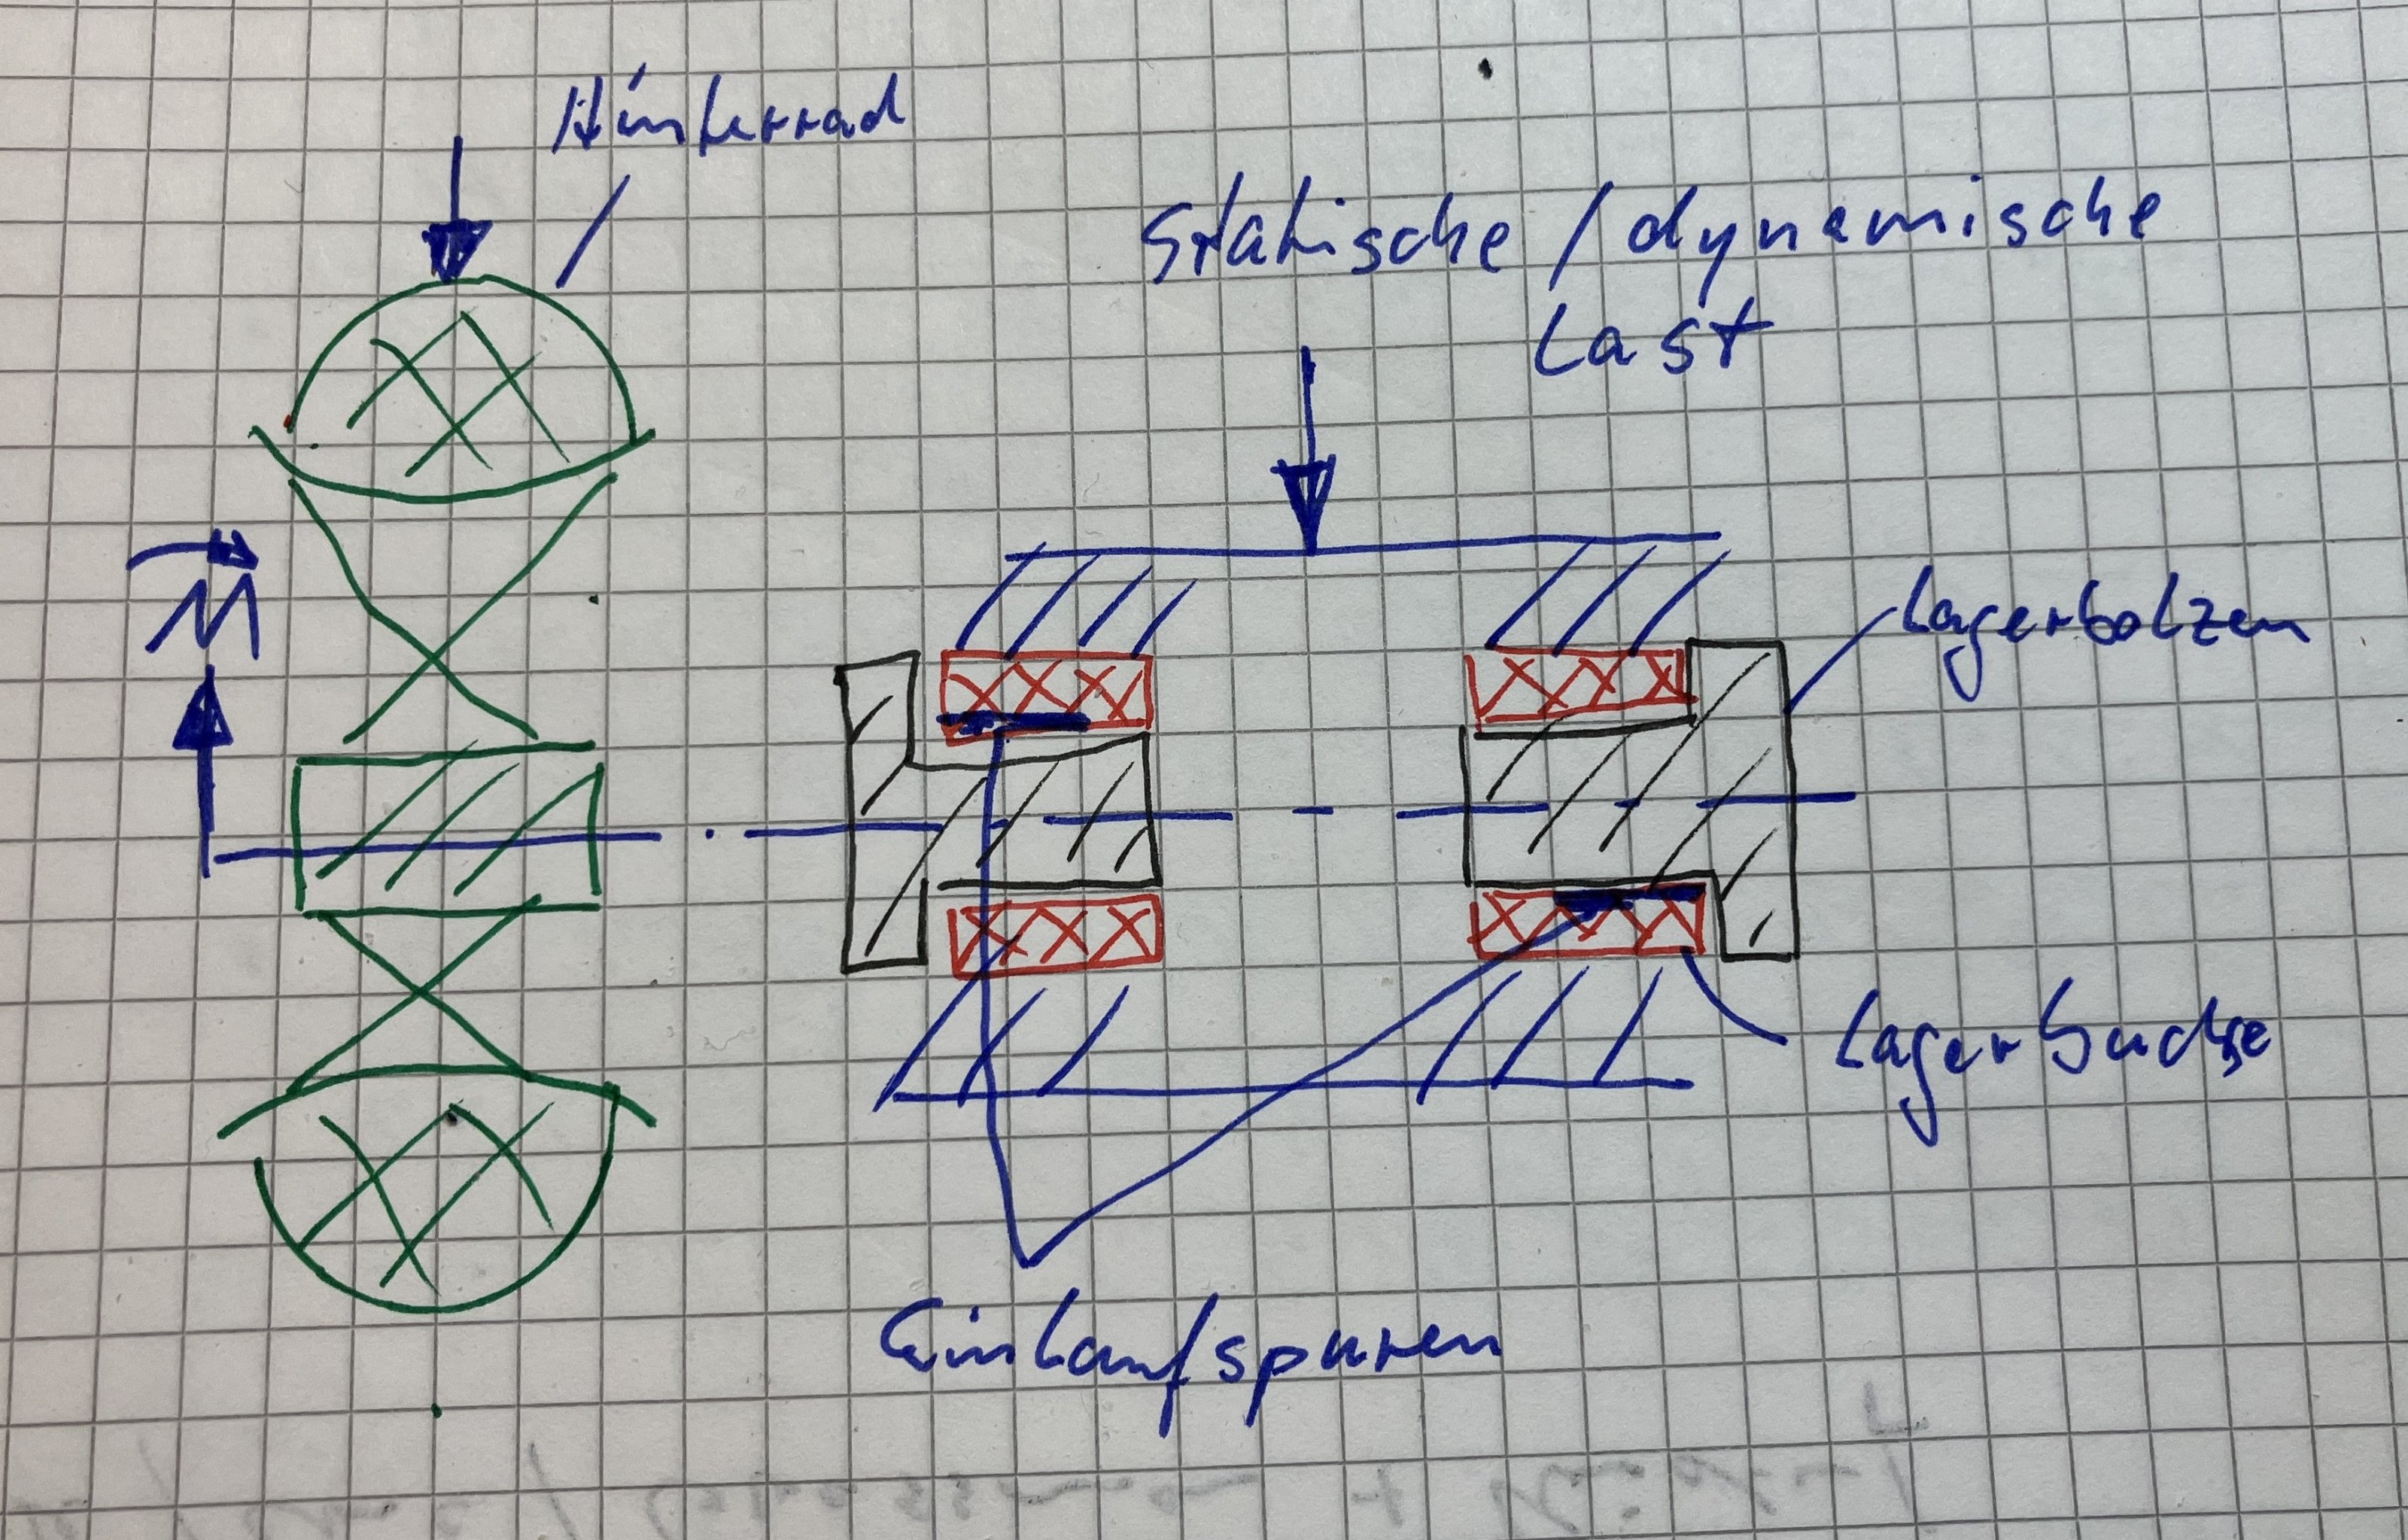 Hinterrad
Statische / dynamische
Last
M
Lagerbolzen
Lagerbuchse
Einlaufspuren